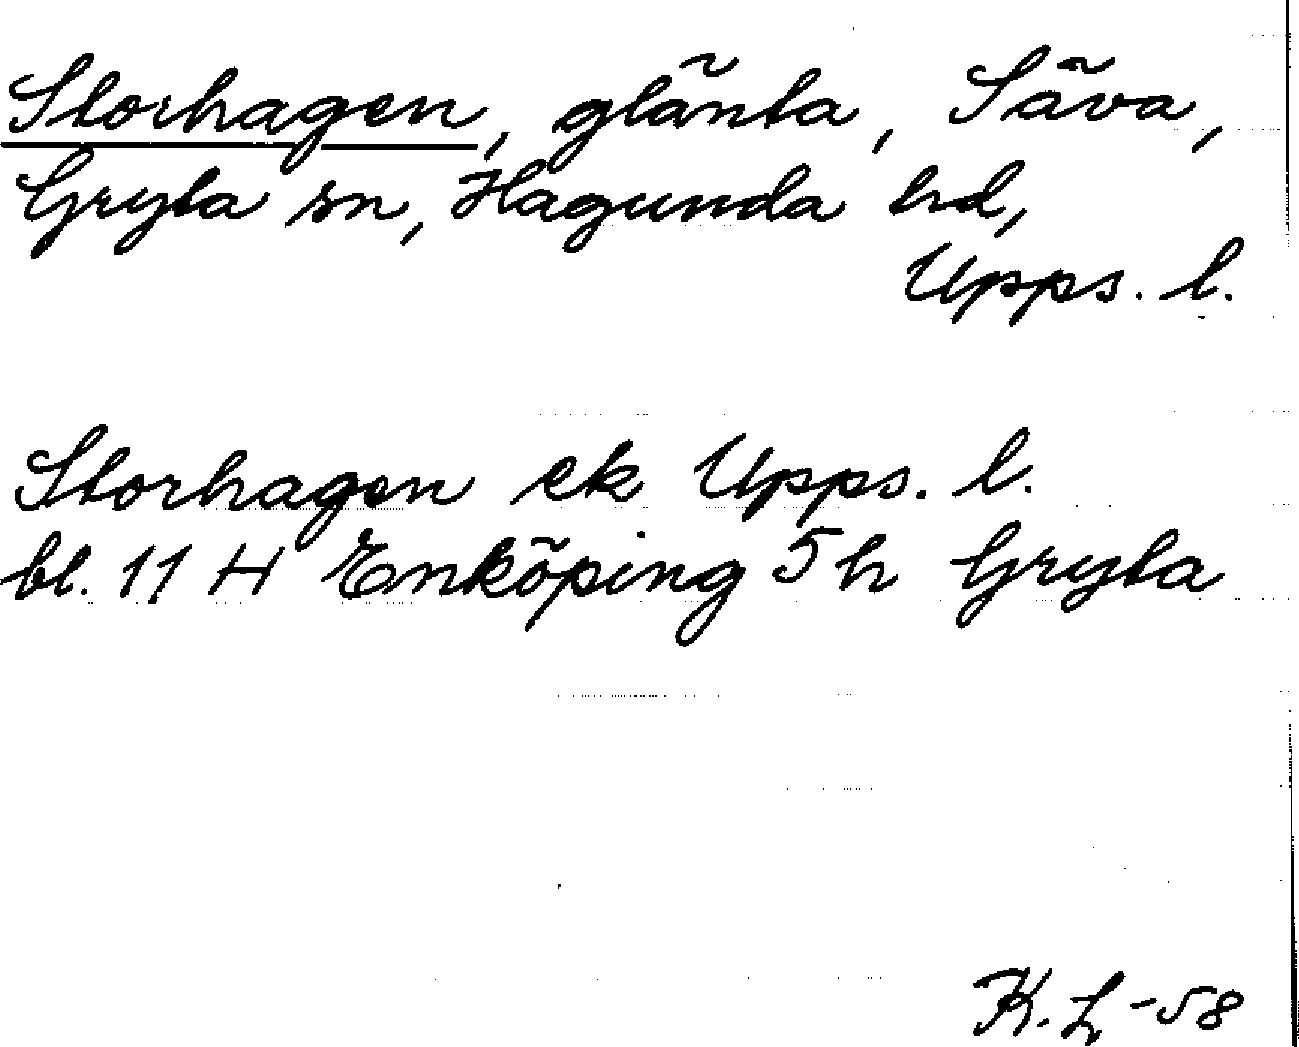 Storhagen, glänta, Säva,
Gryta sn, Hagunda hd,
Upps. l.
Storhagen ek Upps. l.
bl. 11 H Enköping 5 h Gryta
K. L -58